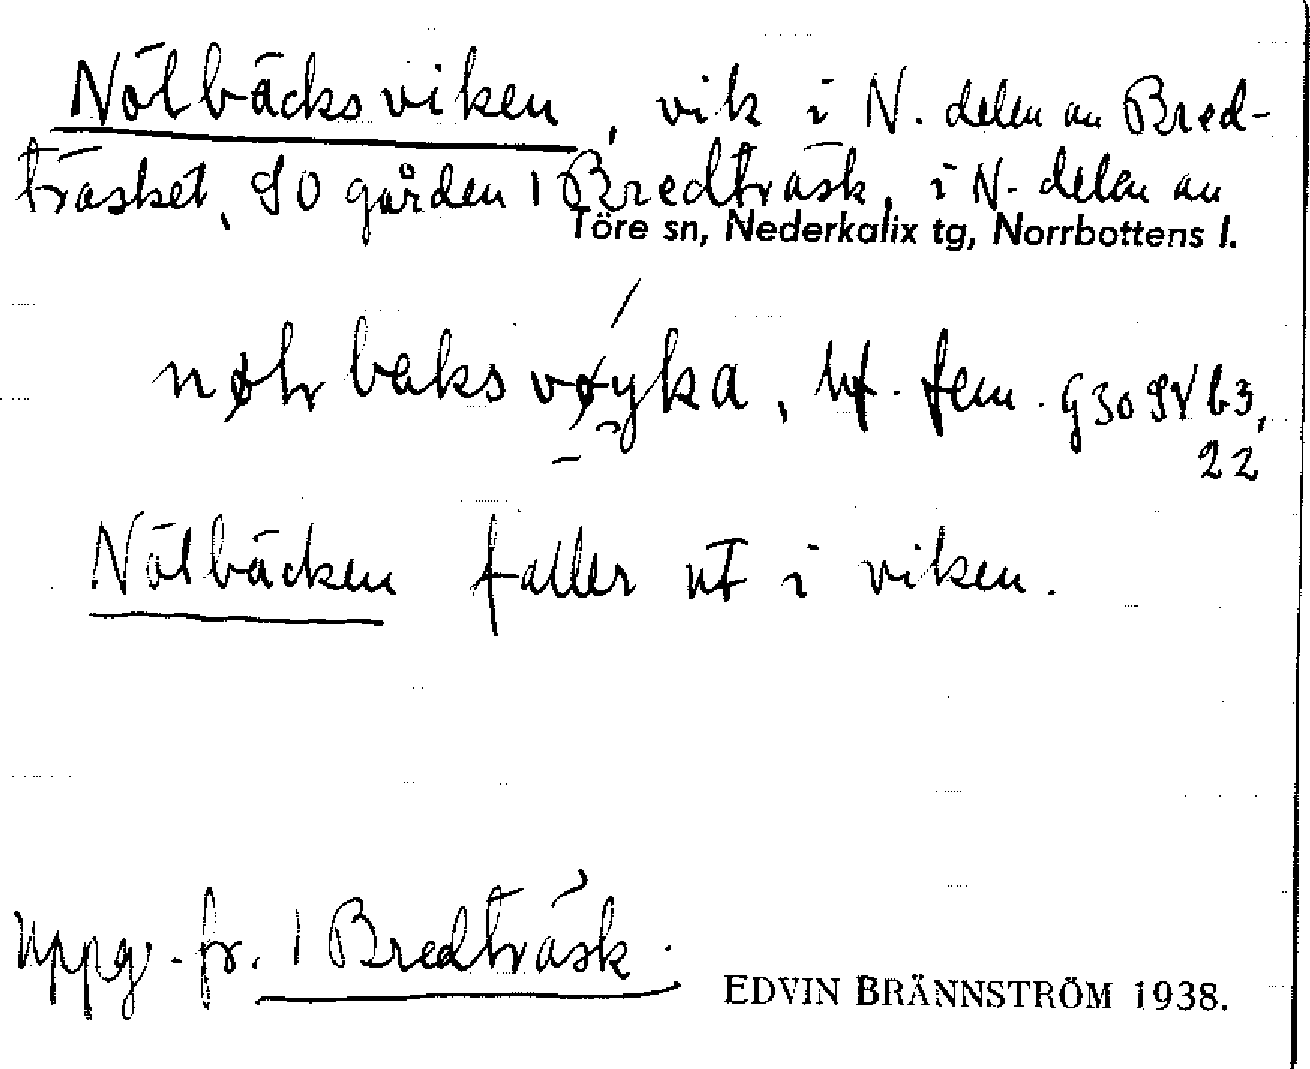 Nölbäcksviken, vik i N. delen av Bred-
träsket, SO gården 1 Bredträsk, i N. delen av
Töre sn, Nederkalix tg, Norrbottens l.
bf. fem. G30 SV b3,
22
Nölbäcken faller ut i viken.
Uppg. fr. 1 Bredträsk.
EDVIN BRÄNNSTRÖM 1938.